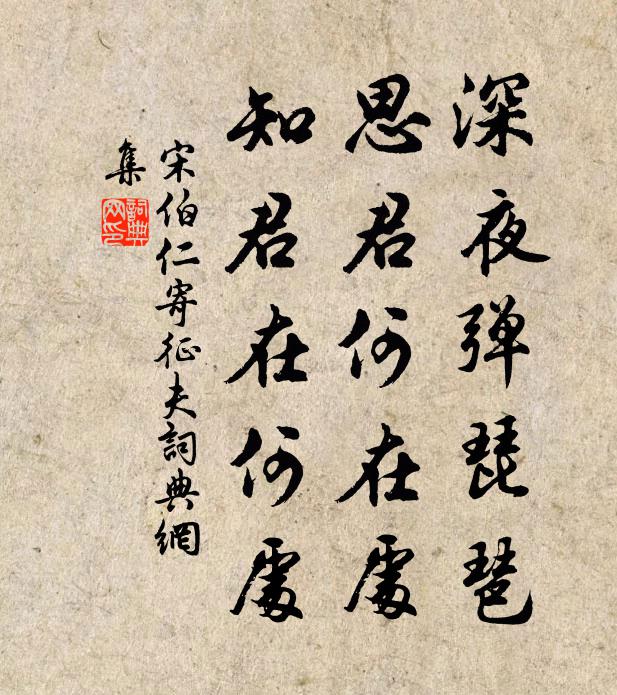 深夜弹琵琶
思君何在處
知君在何處
宋伯仁寄征夫詞典網
集
詞典
网印